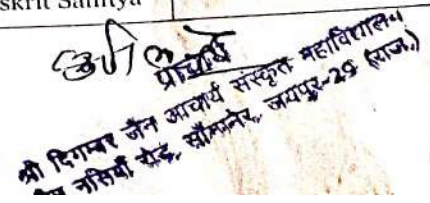 skrit Sahitya
प्राचार्य
श्री दिगम्बर जैन आचार्य संस्कृत महाविद्यालय
नसियाँ रोड, सांगानेर, जयपुर-29 (राज.)